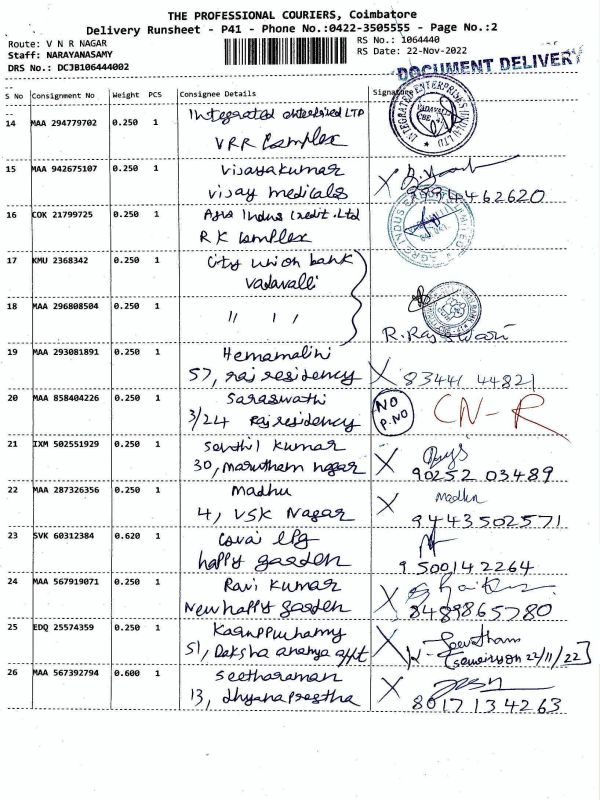 THE PROFESSIONAL COURIERS, Coimbatore
Delivery Runsheet - P41 - Phone No.:0422-3505555 - Page No.:2
Route: V N R NAGAR
RS No.: 1064440
Staff: NARAYANASAMY
RS Date: 22-Nov-2022
DRS No.: DCJB106444002
DOCUMENT DELIVERY
S No Consignment No Weight PCS Consignee Details Signature
14 MAA 294779702 0.250 1 Integrated LTD
VRR Complex
15 MAA 942675107 0.250 1 Vijayakumar
Vijay medicals 9994462620
16 COK 21799725 0.250 1 Agro Indus Credit.Ltd
R K Complex
17 KMU 2368342 0.250 1 City Union bank
Vadavalli
18 MAA 296808504 0.250 1 " " "
R. Rajeswari
19 MAA 293081891 0.250 1 Hemamalini
57, raj residency X 83441 44821
20 MAA 858404226 0.250 1 Saraswathi
3/24 Raj residency NO P.NO CN-R
21 IXM 502551929 0.250 1 Senthil Kumar
30, Marutham nagar X 90252 03489
22 MAA 287326356 0.250 1 Madhu Madhu
4, VSK Nagar X 9443502571
23 SVK 60312384 0.620 1 Covai lpg
happy garden 9500142264
24 MAA 567919071 0.250 1 Ravi Kumar
New happy garden X 8489865780
25 EDQ 25574359 0.250 1 Karuppuchamy
51, Daksha ananya appt X 22/11/22
26 MAA 567392794 0.600 1 Seetharaman
13, dhyanaprestha X 8017134263